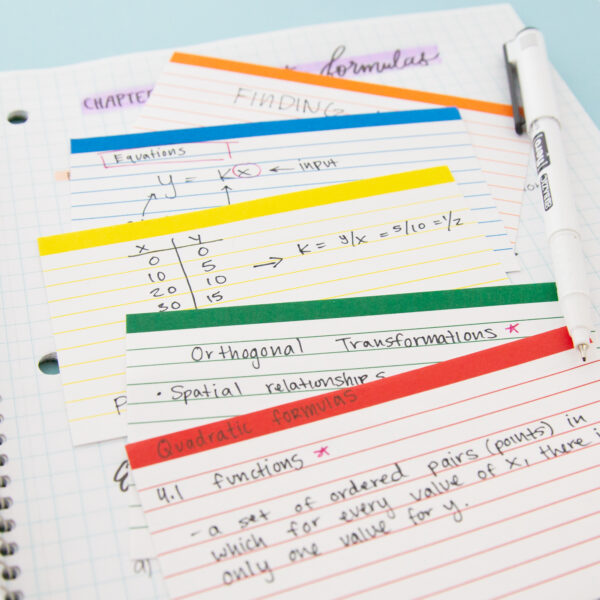 CHAPTER formulas
FINDING
Equations
y = Kx ← input
x y
0 0
10 5
20 10
30 15
→ K = y/x = 5/10 = 1/2
Orthogonal Transformations *
• Spatial relationships
Quadratic formulas
4.1 functions *
- a set of ordered pairs (points) in
which for every value of x, there i
only one value for y.